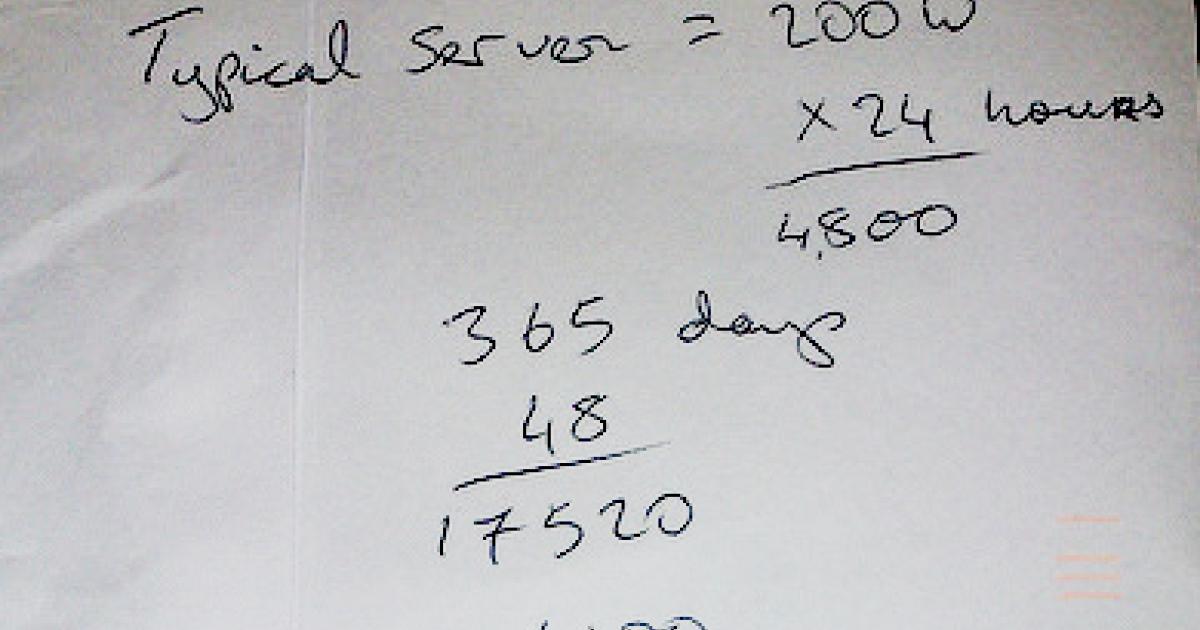 Typical Server = 200W
x 24 hours
4,800
365 days
48
17520